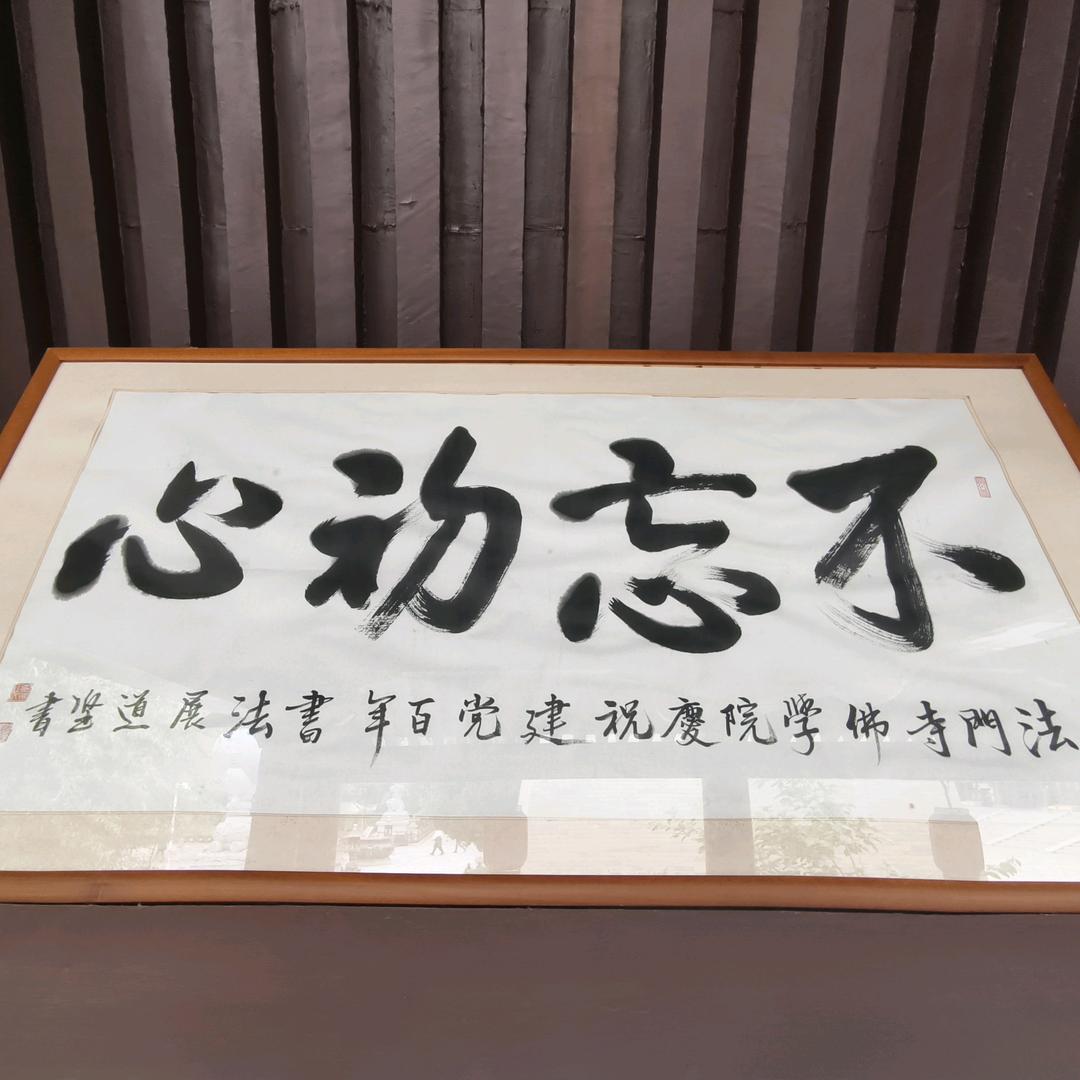 不忘初心
法門寺佛學院慶祝建党百年書法展道坚書